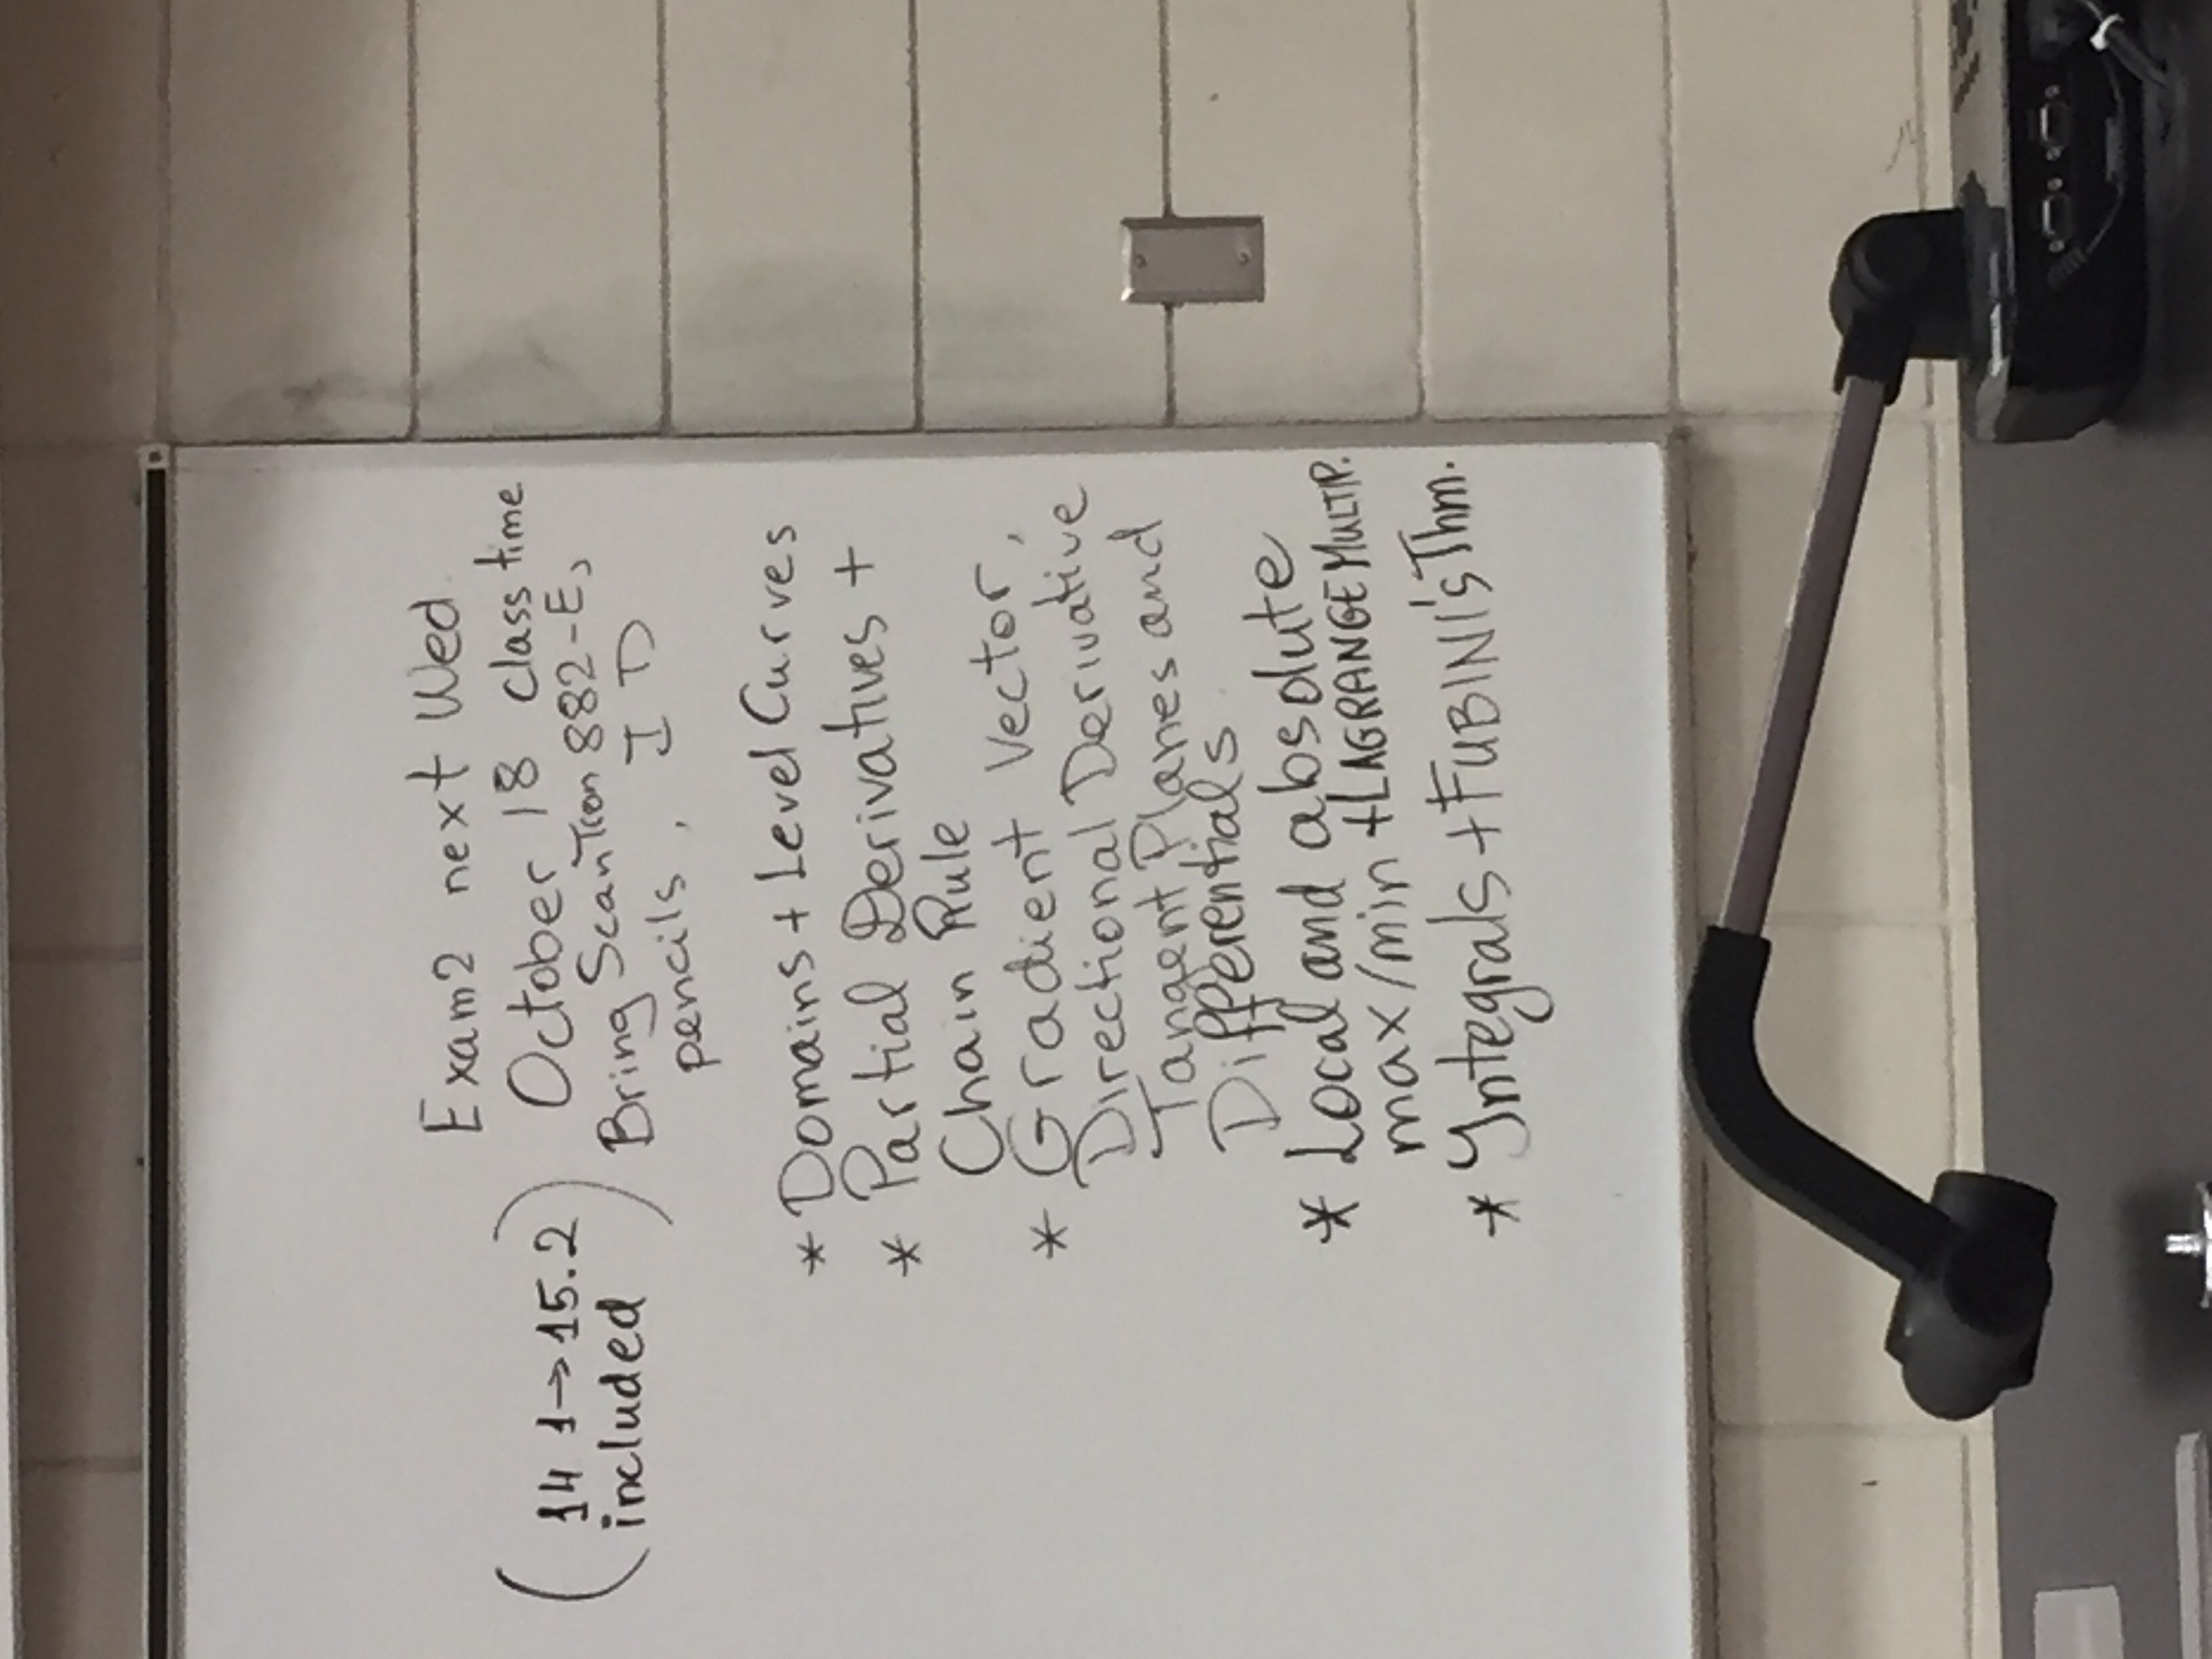 Exam 2 next Wed.
October 18 class time
(14 1→15.2
included)
Bring ScanTron 882-E,
pencils, ID
* Domains + Level Curves
* Partial Derivatives +
Chain Rule
* Gradient Vector,
Directional Derivative
Tangent Planes and
Differentials
* Local and absolute
max/min + LAGRANGE MULTIP.
* Integrals + FUBINI's Thm.